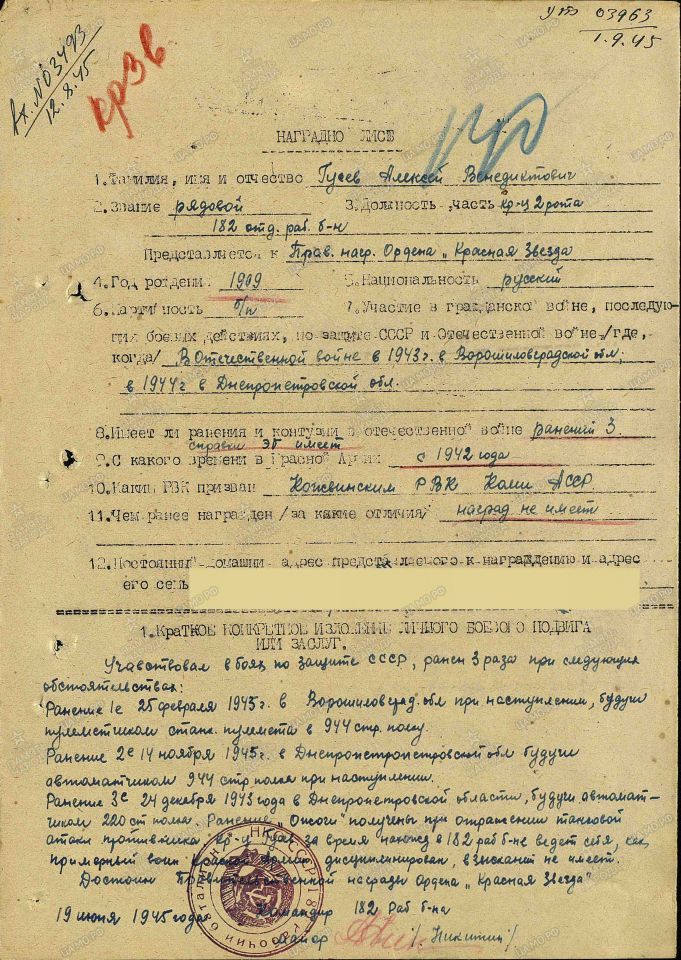 утв 03963
1.9.45
Вх. № 03493
12.8.45
кр Зв
НАГРАДНО ЛИСТ
1. Фамилия, имя и отчество Гусев Алексей Венедиктович
2. Звание рядовой 3. Должность, часть кр-ц 2 рота
182 отд. раб. б-н
Представляется к Прав. нагр. Ордена „Красная Звезда
4. Год рождени 1909 5. Национальность русский
6. Парти ность б/п 7. Участие в гражданско во не, последую-
щих боевых действиях, по защите СССР и Отечественной во не /где,
когда/ В Отечественной войне в 1943 г. в Ворошиловградской обл,
в 1944 г в Днепропетровской обл.
8. Имеет ли ранения и контузии в отечественно войне ранений 3.
справки эг имеет
9. С какого времени в Красной Армии с 1942 года
10. Каким РВК призван Кожвинским РВК Коми АССР
11. Чем ранее награжден /за какие отличия/ наград не имеет
12. Постоянный домашни адрес представляемого к награждению и адрес
его семь
1. КРАТКОЕ КОНКРЕТНОЕ ИЗЛОЖЕНИЕ ЛИЧНОГО БОЕВОГО ПОДВИГА
ИЛИ ЗАСЛУГ.
Учавствовал в боях по защите СССР, ранен 3 раза при следующих
обстоятельствах:
Ранение 1е 25 февраля 1943 г. в Ворошиловград. обл при наступлении, будучи
пулеметчиком станк. пулемета в 944 стр. полку.
Ранение 2е 14 ноября 1943 г. в Днепропетропетровской обл будучи
автоматчиком 944 стр полка при наступлении.
Ранение 3е 24 декабря 1943 года в Днепропетровской области, будучи автомат-
чиком 220 ст полка. Ранение „Ожоги" получены при отражении танковой
атаки противника кр-ц Гусев за время нахожд в 182 раб б-не ведет себя, как
примерный воин Красной Армии, дисциплинирован, взысканий не имеет.
Достоин Правительственной награды Ордена „Красная Звезда"
19 июня 1945 года Командир 182 Раб б-на
майор /Никитин/